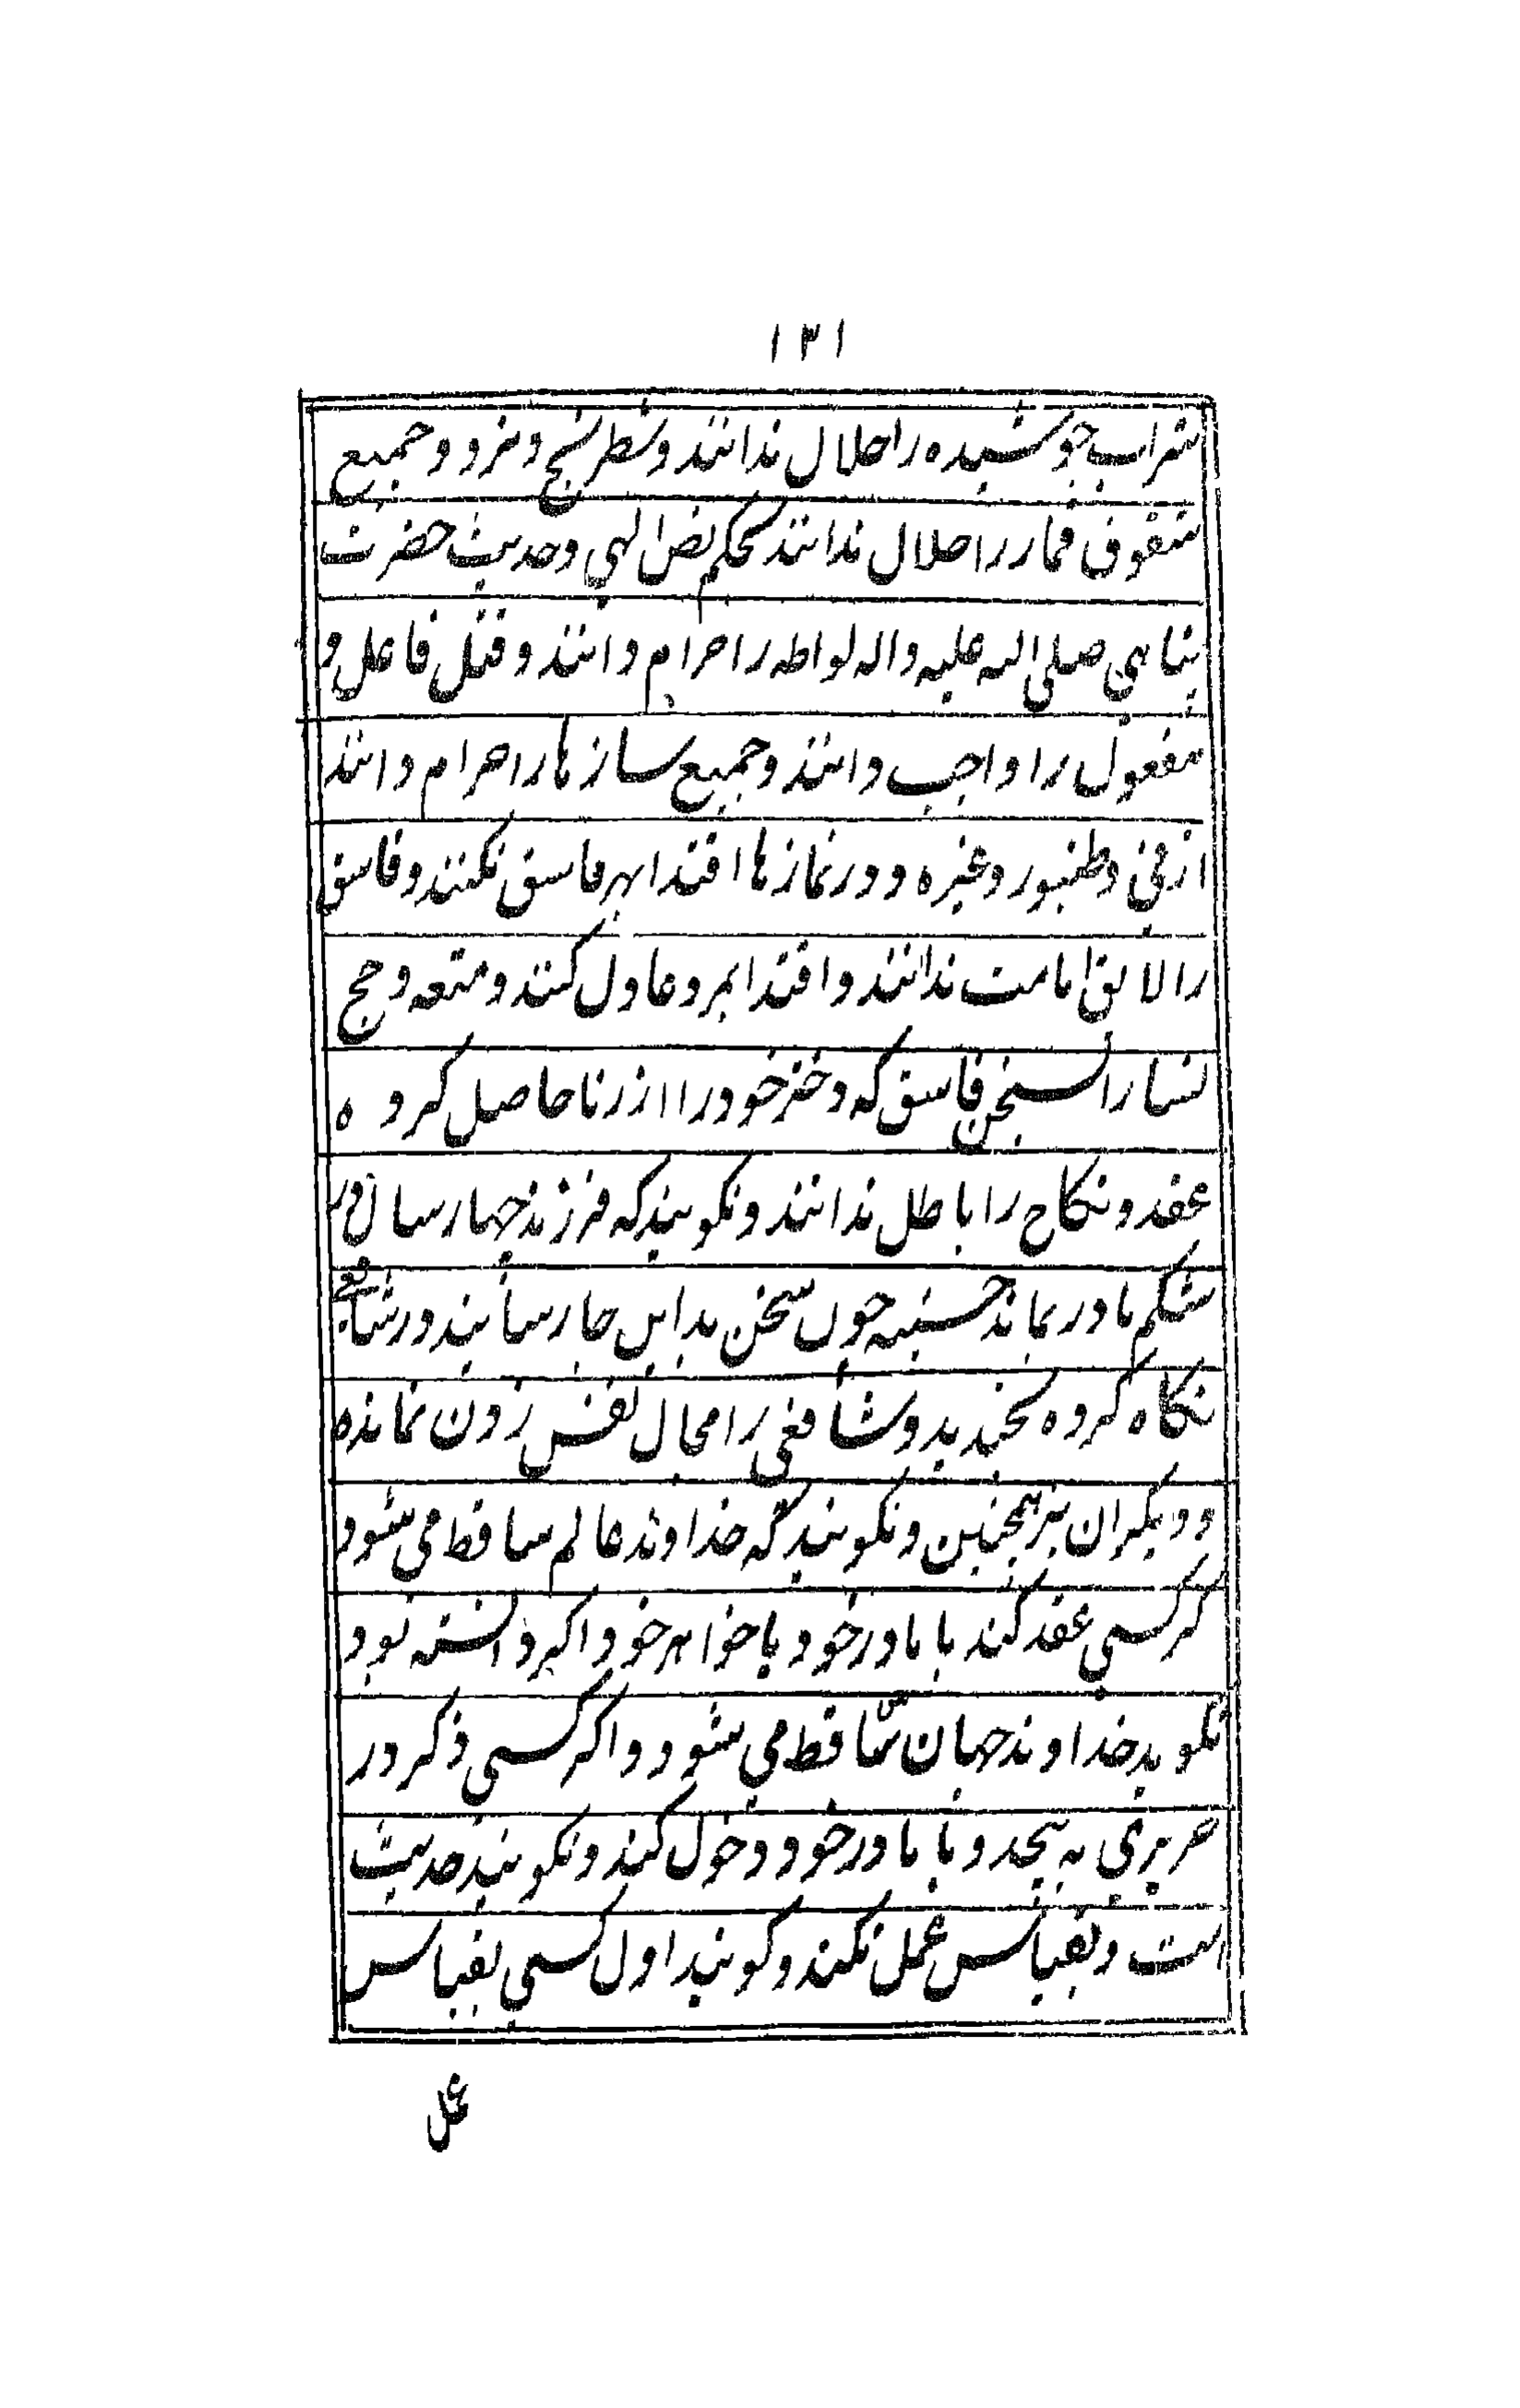 ۱۳۱
شراب جوشیده را حلال ندانند و شطرنج و نرد و جمیع
شقوق قمار را حلال ندانند بحکم نص الهی و حدیث حضرت
پناهی صلی الله علیه واله لواطه را حرام دانند و قتل فاعل و
مفعول را واجب دانند و جمیع سازها را حرام دانند
از نی و طنبور و غیره و در نمازها اقتدا بهر فاسق نکنند و فاسق
را لایق امامت ندانند و اقتدا بمرد عادل کنند و متعه و حج
نسا را بسخن فاسق که دختر خود را از زنا حاصل کرده
عقد و نکاح را باطل ندانند و نکویند که فرزند چهار سال در
شکم مادر بماند حسنیه چون سخن بداین جا رسانید در شافعی
نکاه کرده بخندید و شافعی را مجال نفس زدن نمانده
و دیکران نیز همچنین و نکویند که خداوند عالم ساقط می شود
کر کسی عقد کند با مادر خود یا خواهر خود اکر دانسته بود
نکوید خداوند جهان ساقط می شود و اکر کسی ذکر در
حریری به پیچد و با مادر خود دخول کند و نکویند حدیث
است و بقیاس عمل نکنند و کویند اول کسی بقیاس
عمل